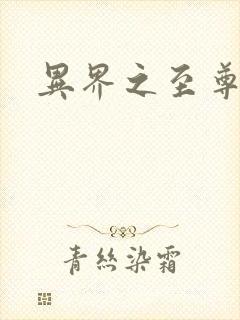 異界之至尊
青絲染霜